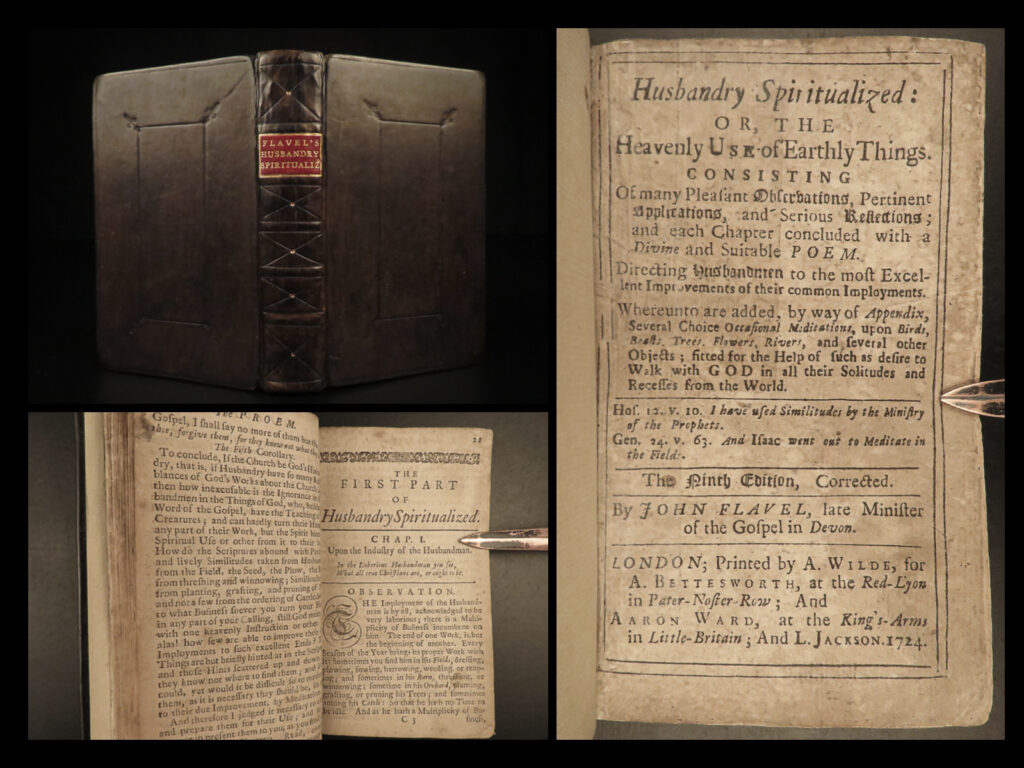 FLAVEL'S
HUSBANDRY
SPIRITUALIZ
Husbandry Spiritualized:
OR, THE
Heavenly USE of Earthly Things.
CONSISTING
Of many Pleaſant Obſervations, Pertinent
Applications, and Serious Reflections;
and each Chapter concluded with a
Divine and Suitable POEM.
Directing Husbandmen to the moſt Excel-
lent Improvements of their common Imployments.
Whereunto are added, by way of Appendix,
Several Choice Occaſional Meditations, upon Birds,
Beaſts, Trees, Flowers, Rivers, and ſeveral other
Objects; fitted for the Help of ſuch as deſire to
Walk with GOD in all their Solitudes and
Receſſes from the World.
Hoſ. 12. v. 10. I have uſed Similitudes by the Miniſtry
of the Prophets.
Gen. 24. v. 63. And Iſaac went out to Meditate in
the Field.
The Ninth Edition, Corrected.
By JOHN FLAVEL, late Miniſter
of the Goſpel in Devon.
LONDON; Printed by A. WILDE, for
A. BETTESWORTH, at the Red-Lyon
in Pater-Noſter-Row; And
AARON WARD, at the King's-Arms
in Little-Britain; And L. JACKSON. 1724.
The PROEM.
Goſpel, I ſhall ſay no more of them but
ther, forgive them, for they know not what they
The Fifth Corollary.
To conclude, If the Church be God's
dry, that is, if Husbandry have ſo many
blances of God's Works about the Church
then how inexcuſable is the Ignorance
bandmen in the Things of God, who,
Word of the Goſpel, have the Teaching
Creatures; and can hardly turn their
any part of their Work, but the Spirit
Spiritual Uſe or other from it to their
How do the Scriptures abound with
and lively Similitudes taken from
from the Field, the Seed, the Plow, the
from threſhing and winnowing; Similitudes
from planting, grafting, and pruning of
and not a few from the ordering of Cattle.
to what Buſineſs ſoever you turn your
in any part of your Calling, ſtill God
with one heavenly Inſtruction or other
alas! how few are able to improve their
Imployments to ſuch excellent Ends!
Things are but briefly hinted at in the
and thoſe Hints ſcattered up and down,
they know not where to find them; and
could, yet would it be difficult ſo to
them, as it is neceſſary they ſhould be,
to their due Improvement, by Meditation.
And therefore I judged it neceſſary
and prepare them for their Uſe; and
present them to you, as you find
Read,
21
THE
FIRST PART
OF
Husbandry Spiritualized.
CHAP. I.
Upon the Induſtry of the Husbandman.
In the Laborious Husbandman you ſee,
What all true Chriſtians are, or ought to be.
OBSERVATION.
THE Imployment of the Husband-
man is by all, acknowledged to be
very laborious; there is a Multi-
plicity of Buſineſs incumbent on
him. The end of one Work, is but
the beginning of another. Every
Seaſon of the Year brings its proper Work with
it: Sometimes you find him in his Fields, dreſſing,
plowing, ſowing, harrowing, weeding, or reap-
ing; and ſometimes in his Barn, threſhing, or
winnowing; ſometime in his Orchard, planting,
grafting, or pruning his Trees; and ſometimes
among his Cattle: So that he hath no Time to
be idle. And as he hath a Multiplicity of Bu-
C 3
ſineſs,